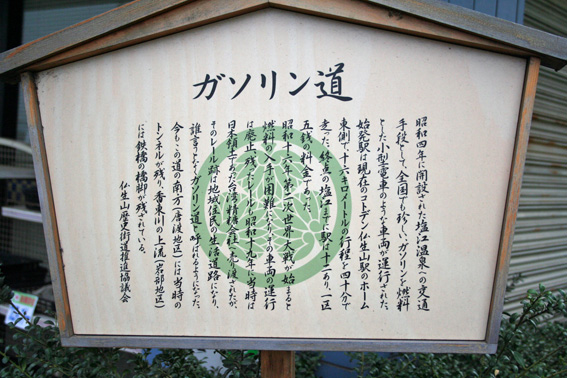 ガソリン道
昭和四年に開設された塩江温泉への交通
手段として、全国でも珍しいガソリンを燃料
とした小型電車のような車両が運行された。
始発駅は現在のコトデン仏生山駅のホーム
東側で、十六キロメートルの行程を四十分で
走った。終点の塩江までに駅は十二あり、一区
五銭の料金で
昭和十六年、第二次世界大戦が始まると
燃料の入手が困難になりその車両の運行
は廃止、残った
日本領土であった台湾の精糖会社へ売り渡されたが、
そのレール跡は地域住民の生活道路になり、
誰言うとなくガソリン道と呼ばれるようになった。
今もこの道の南方(唐渡地区)には当時の
トンネルが残り、香東川の上流(岩部地区)
には鉄橋の橋脚が残されている。
仏生山歴史街道推進協議会